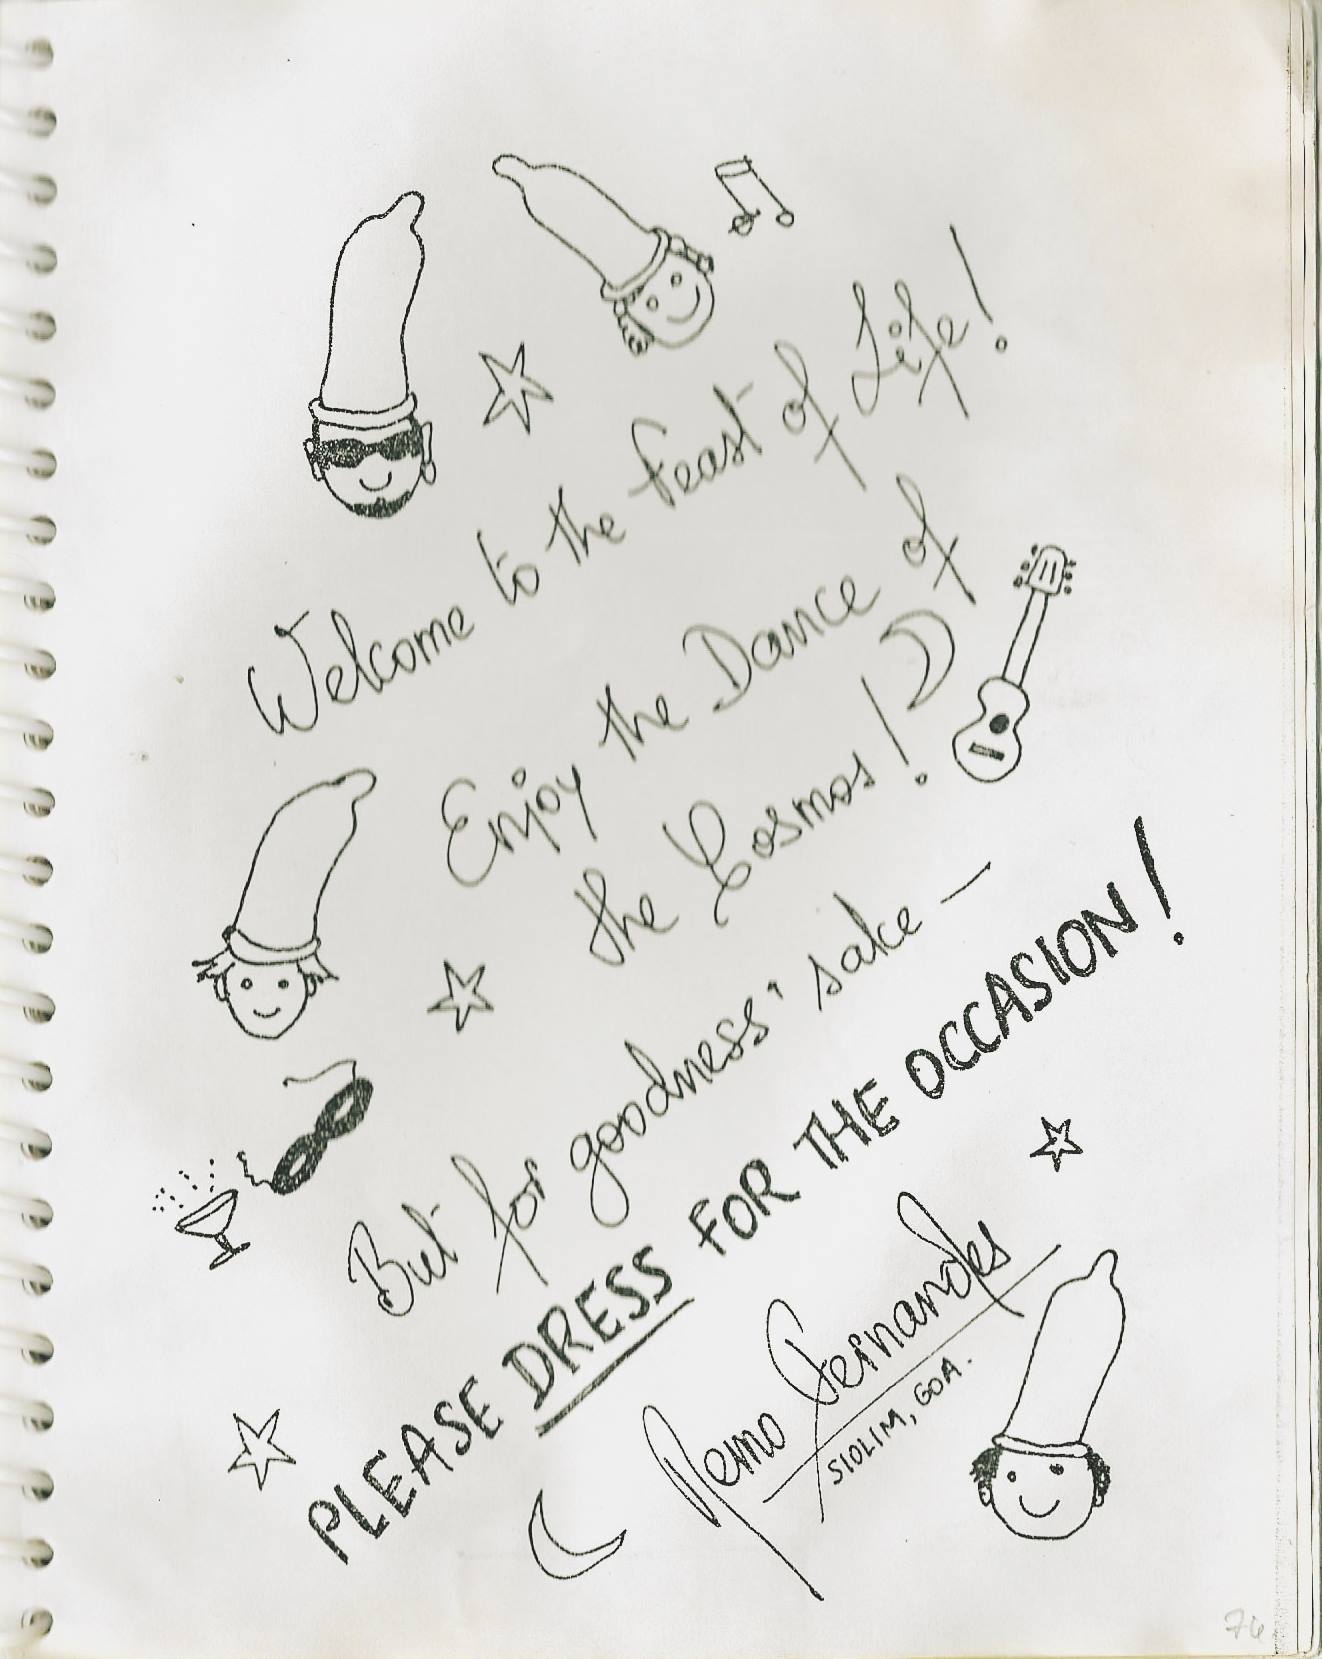 Welcome to the Feast of Life!
Enjoy the Dance of
the Cosmos!
But for goodness' sake —
PLEASE DRESS FOR THE OCCASION!
Remo Fernandes
SIOLIM, GOA.
76